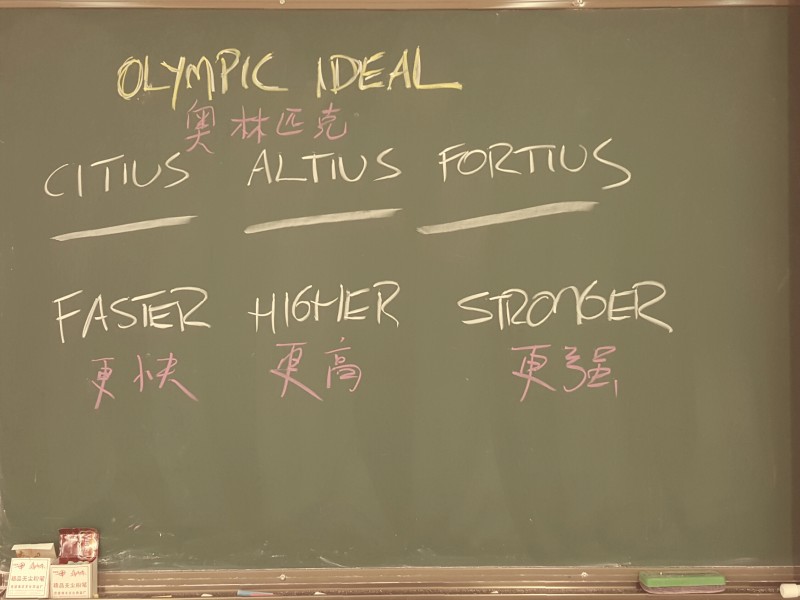 OLYMPIC IDEAL
奥林匹克
CITIUS ALTIUS FORTIUS
FASTER HIGHER STRONGER
更快 更高 更强